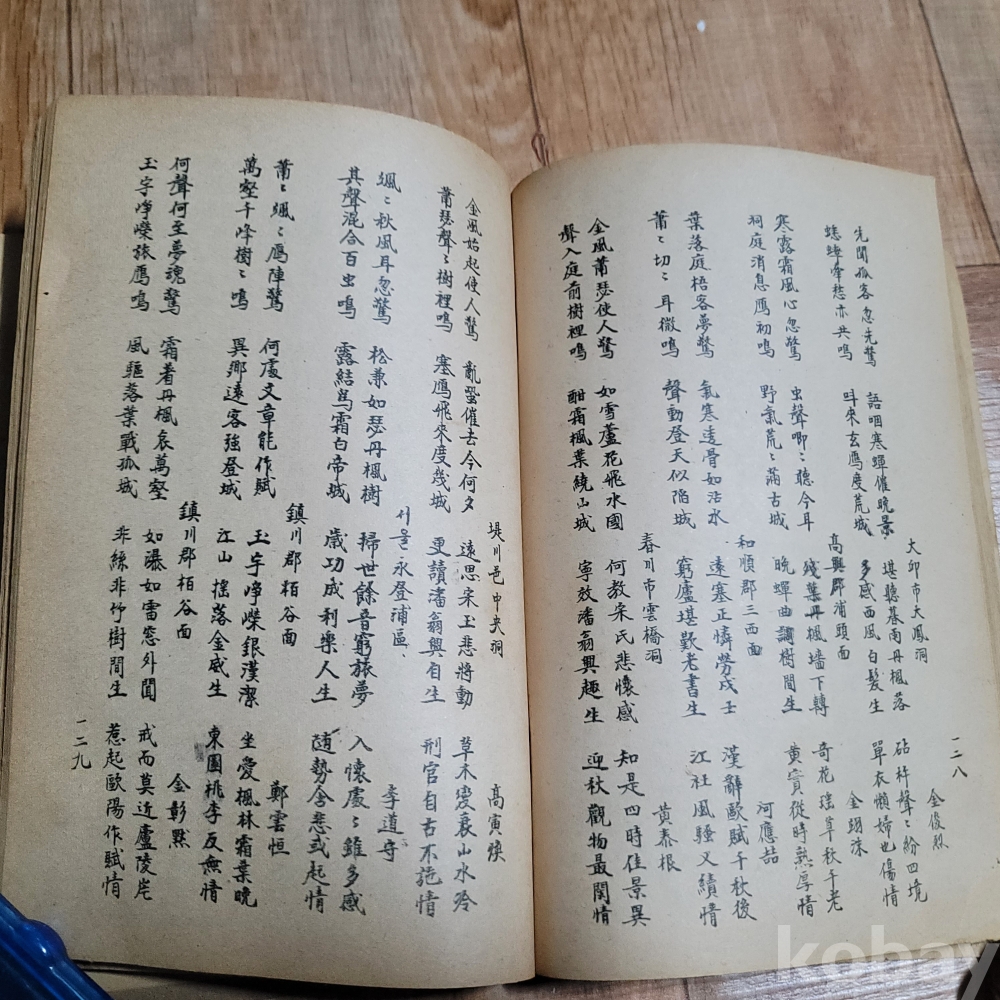 大邱市大鳳洞 金俊烈
先聞孤客忽先驚 語咽寒蟬催晩景 堪聽暮南丹楓落 砧杵聲〻紛四境
蟋蟀啼愁亦共鳴 叫來玄鴈度荒城 多感西風白髮生 單衣懶婦也傷情
高興郡浦頭面 金翊洙
寒露霜風心忽驚 虫聲喞〻聽今耳 殘葉丹楓墻下轉 奇花瑤草秋千老
祠庭消息鴈初鳴 野氣荒〻滿古城 晩蟬曲調樹間生 黃實從時熟厚情
和順郡三西面 河應喆
葉落庭梧客夢驚 氣寒透骨如沾水 遠塞正憐勞戍士 漢辭歐賦千秋後
蕭〻切〻耳微鳴 聲動登天似陷城 窮廬堪歎老書生 江社風騷又續情
春川市雲橋洞 黃泰根
金風蕭瑟使人驚 如雪蘆花飛水國 何教宋氏悲懷感 知是四時佳景異
聲入庭前樹裡鳴 酣霜楓葉繞山城 寧效潘翁興趣生 迎秋觀物最関情
一二八
堤川邑中央洞 高寅煥
金風始起使人驚 亂蛩催去今何夕 遠思宋玉悲將動 草木變衰山水冷
蕭瑟聲〻樹裡鳴 塞鴈飛來度幾城 更讀潘翁興自生 刑官自古不施情
서울永登浦區 李道寺
颯〻秋風耳忽驚 松兼如瑟丹楓樹 掃世餘音窮旅夢 入懷處〻雖多感
其聲混合百虫鳴 露結爲霜白帝城 歲功成利樂人生 随勢含悲或起情
鎮川郡栢谷面 鄭雲恒
蕭〻颯〻鴈陣驚 何處文章能作賦 玉宇崢嶸銀漢潔 坐愛楓林霜葉晩
萬壑千峰樹〻鳴 異鄉遠客強登城 江山搖落金威生 東園桃李反無情
鎮川郡栢谷面 金彰默
何聲何至夢魂驚 霜着丹楓哀萬壑 如瀑如雷窓外聞 戒而莫近廬陵岸
玉宇崢嶸旅鴈鳴 風驅落葉戰孤城 非絲非竹樹間生 惹起歐陽作賦情
一二九
kobay